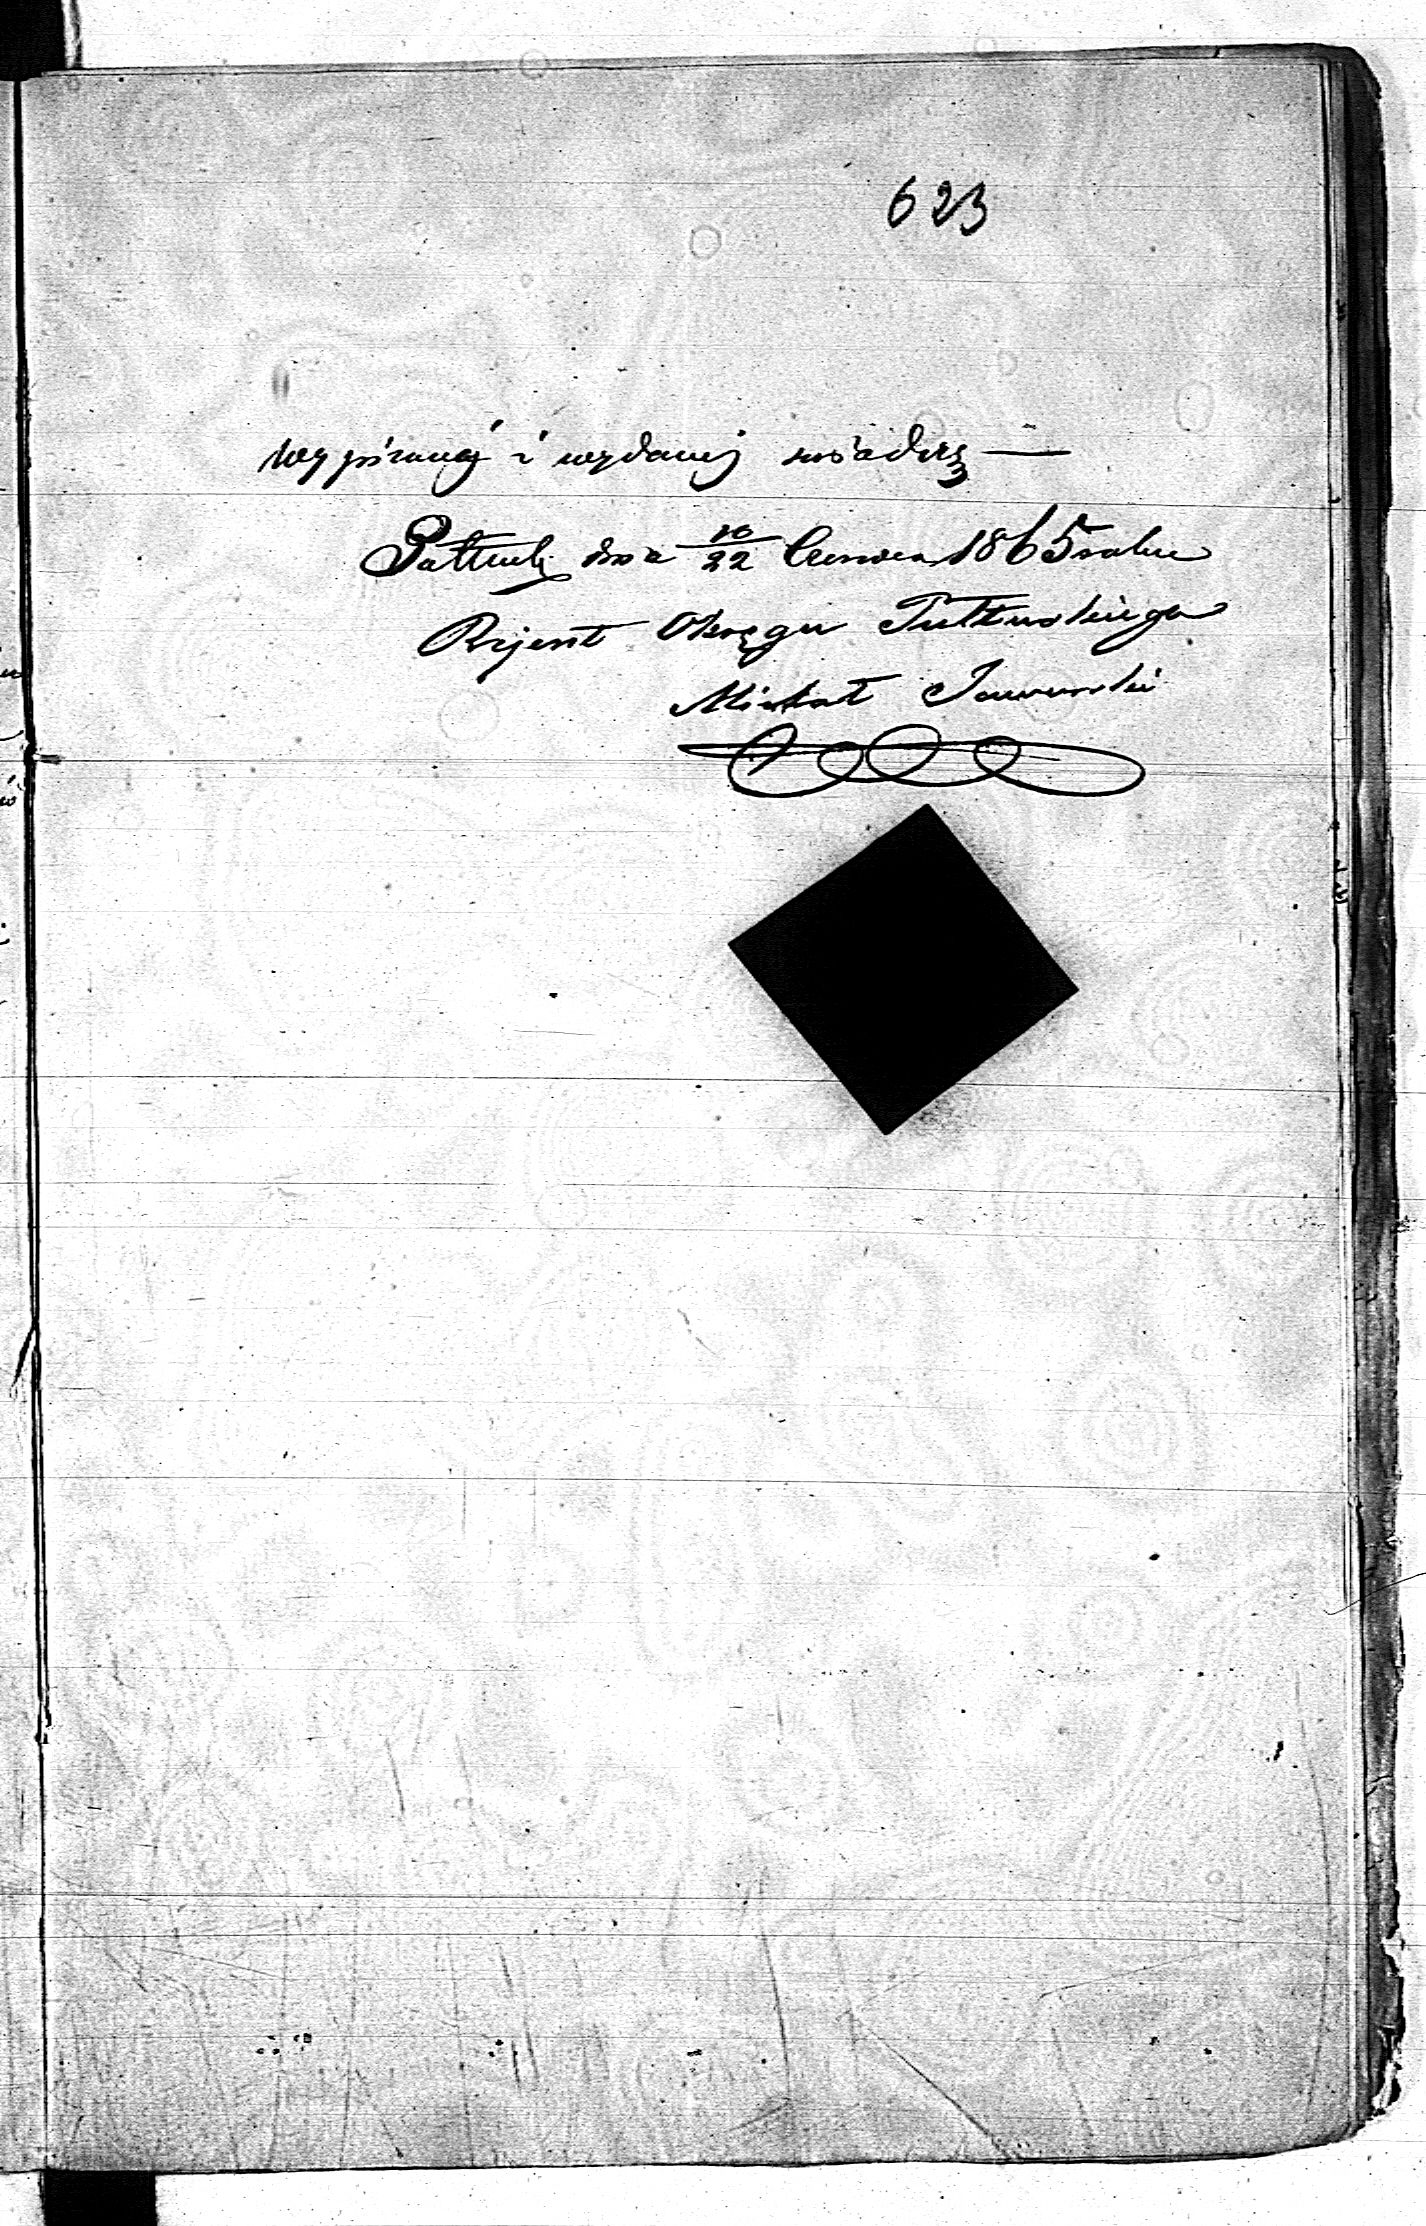 623
wypisanej i wydanej świadczę —
Pułtusk dnia 10/22 Czerwca 1865 roku
Rejent Okręgu Pułtuskiego
Michał Jaworski